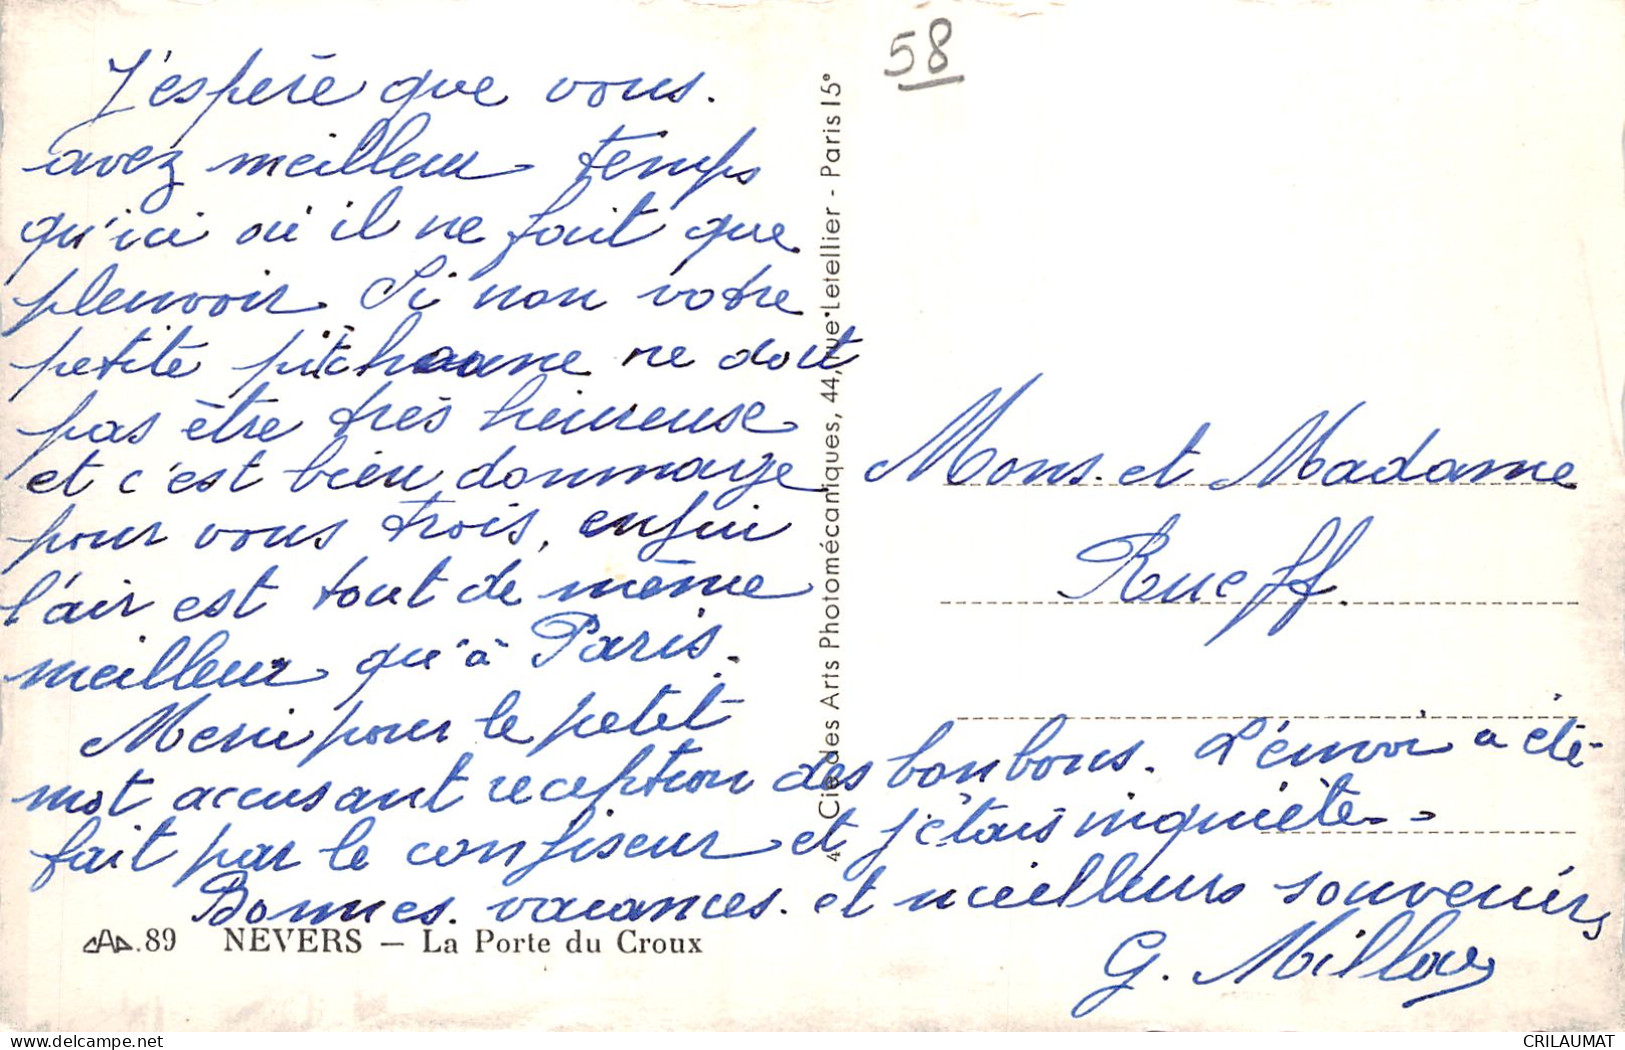 58
J'espère que vous.
avez meilleur temps
qu'ici où il ne fait que
pleuvoir. Si non votre
petite pitchoune ne doit
pas être très heureuse
et c'est bien dommage
pour vous trois, enfin
l'air est tout de même
meilleur qu'à Paris.
Merci pour le petit
mot accusant reception des bonbons. L'envoi a été
fait par le confiseur et j'étais inquiète.
Bonnes. vacances. et meilleurs souvenirs
G.
Mons. et Madame
Rueff.
Cie des Arts Photomécaniques, 44, rue Letellier - Paris 15°
CAP. 89 NEVERS — La Porte du Croux
delcampe.net
CRILAUMAT